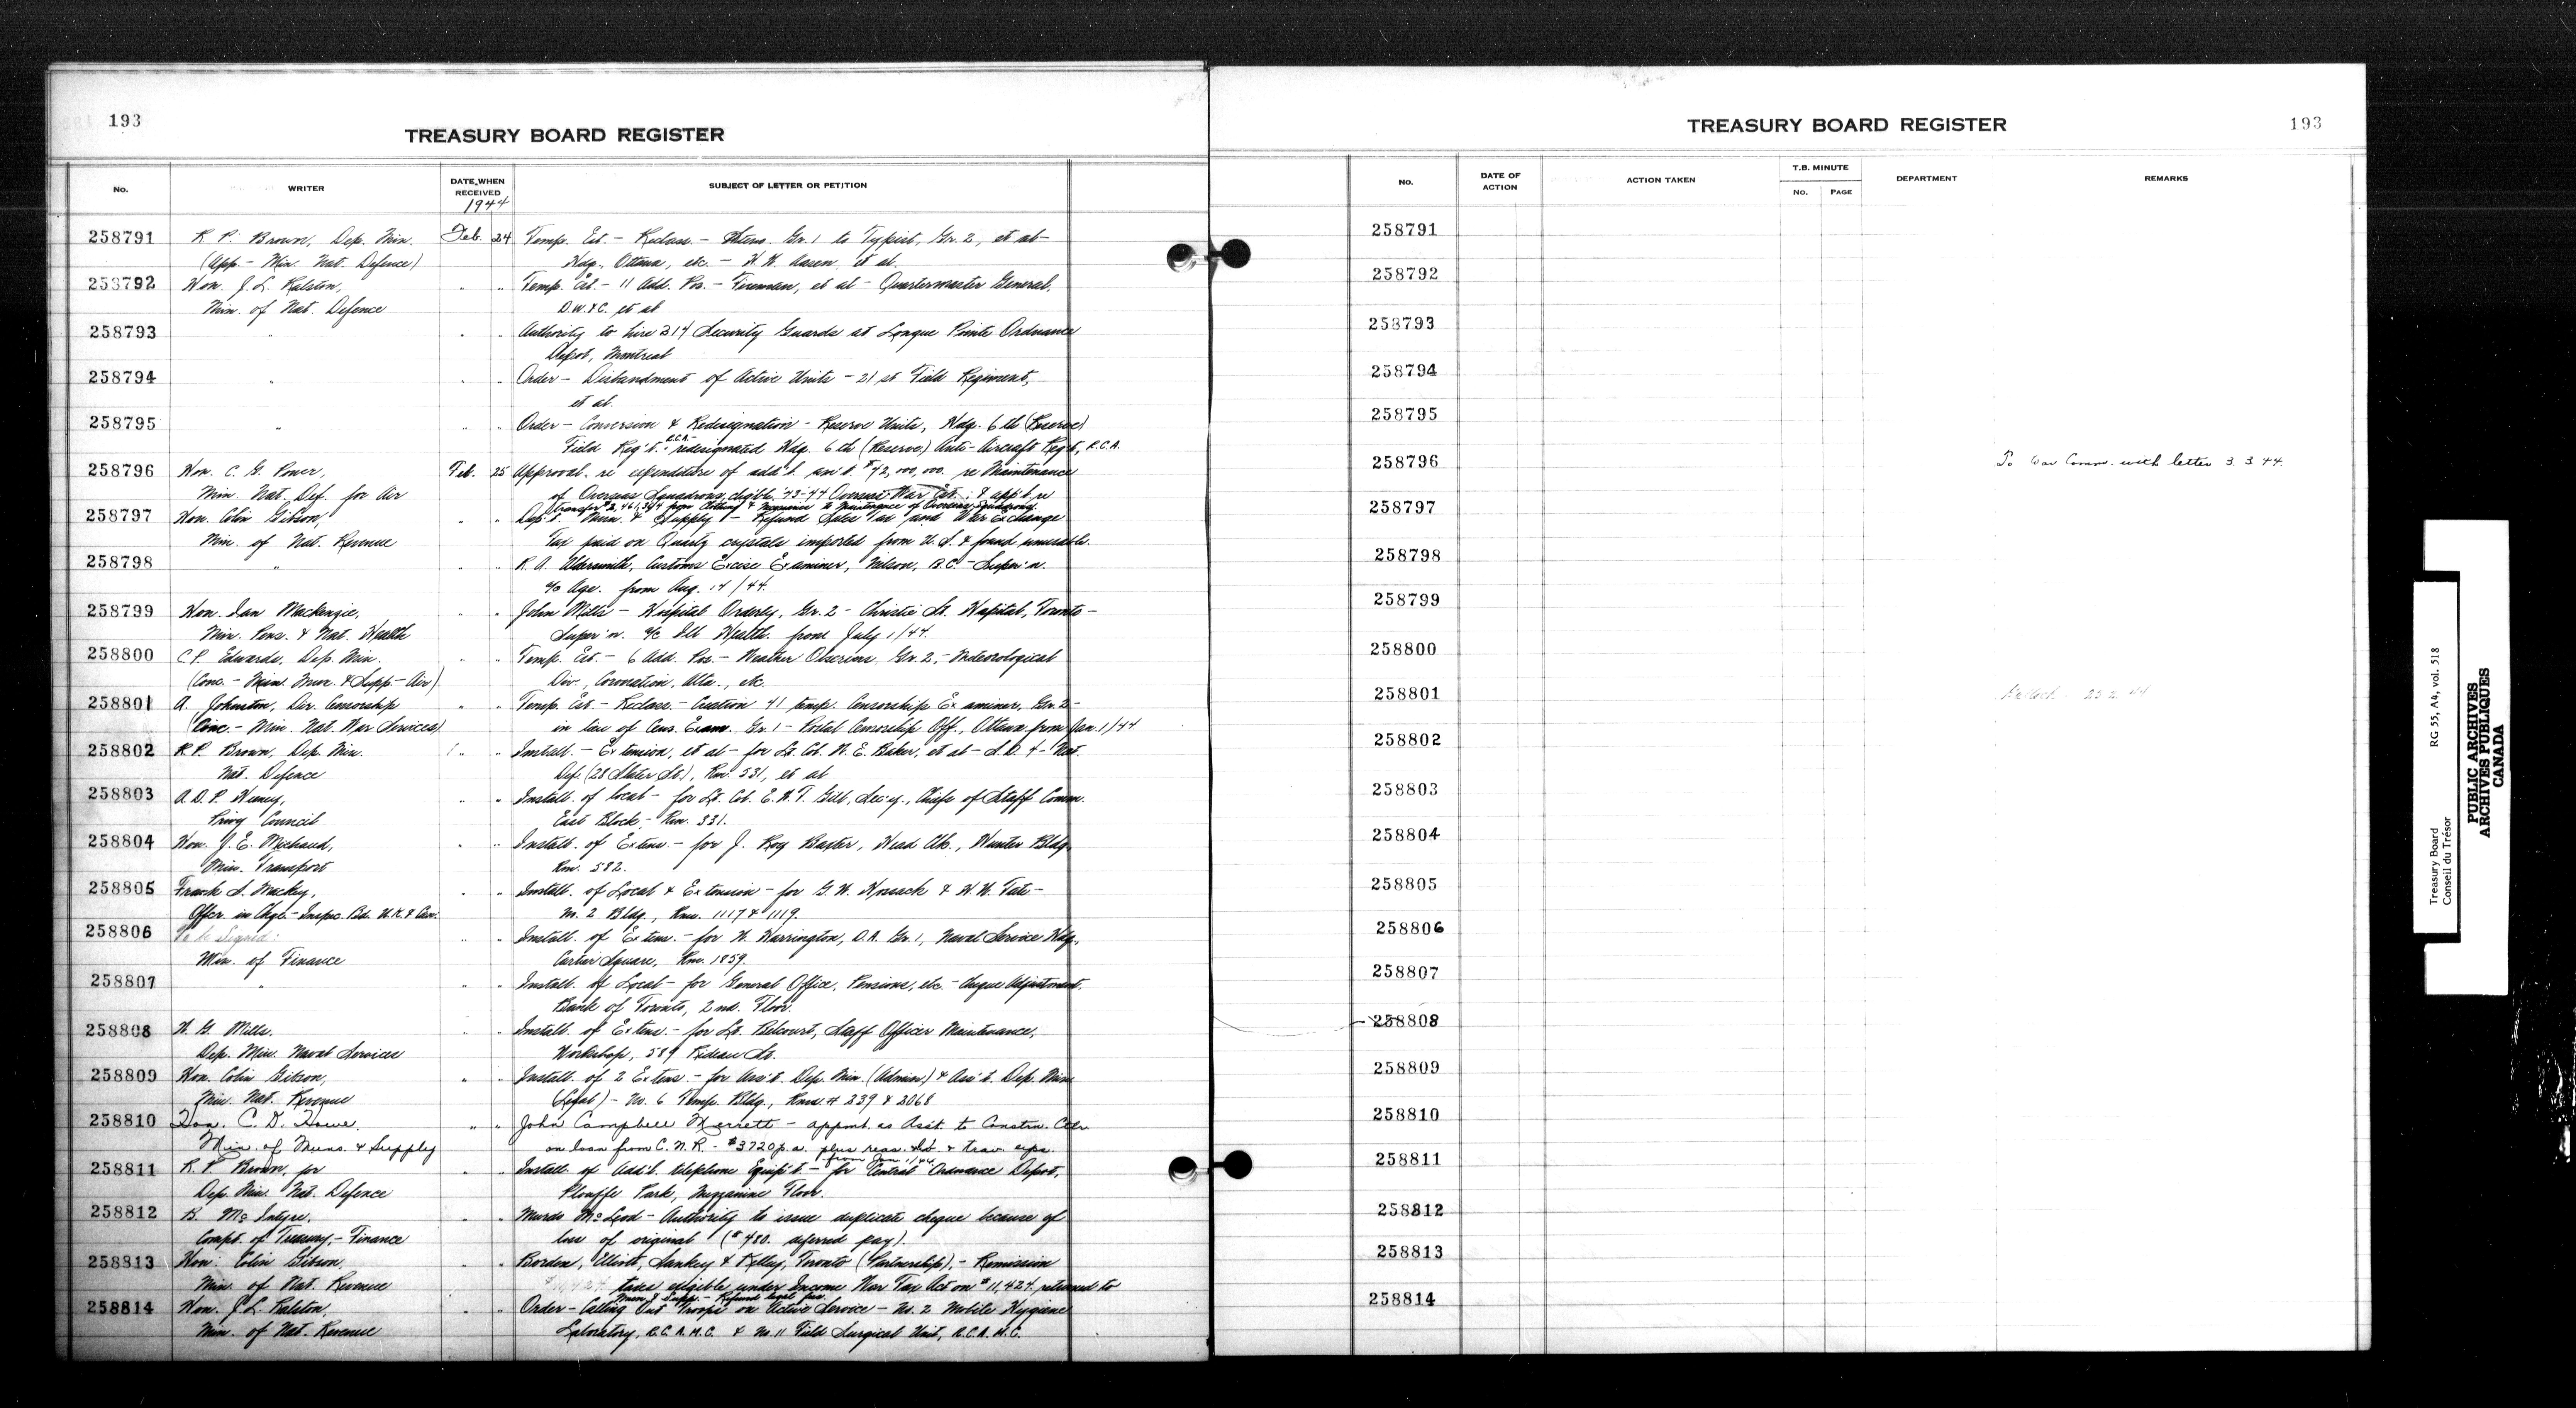 193
TREASURY BOARD REGISTER
No. WRITER DATE WHEN RECEIVED SUBJECT OF LETTER OR PETITION
1944
258791 R. P. Brown, Dep. Min. Feb. 24 Temp. Est. - Reclass. - Steno. Gr. 1 to Typist, Gr. 2, et al -
(App. - Min. Nat. Defence) Hdq., Ottawa, etc. - et al.
258792 Hon. J. L. Ralston, " " Temp. Est. - 11 Add. Pos. - Fireman, et al - Quartermaster General,
Min. of Nat. Defence D.W.&C. et al
258793 " " " Authority to hire 214 Security Guards at Longue Pointe Ordnance
Depot, Montreal
258794 " " " Order - Disbandment of Active Units - 21st Field Regiment,
et al.
258795 " " " Order - Conversion & Redesignation - Reserve Units, Hdq. 6th (Reserve)
Field Reg't. R.C.A. - redesignated Hdq. 6th (Reserve) Anti-Aircraft Reg't, R.C.A.
258796 Hon. C. G. Power, Feb. 25 Approval re expenditure of add'l. am't. $42,000,000. re Maintenance
Min. Nat. Def. for Air of Overseas Squadrons, 43-44 Overseas War Est.; & app't. re
transfer from Clothing & to Maintenance of Overseas Squadrons
258797 Hon. Colin Gibson, " " Dep't. Mun. & Supply - Refund Sales Tax and War Exchange
Min. of Nat. Revenue Tax paid on Quartz crystals imported from U.S. & found unusable.
258798 " " " R. A. Customs Excise Examiner, Nelson, B.C. - Super'n.
a/c Age. from Aug. 14/44.
258799 Hon. Ian Mackenzie, " " John Mills - Hospital Orderly, Gr. 2 - Christie St. Hospital, Toronto -
Min. Pens. & Nat. Health Super'n. a/c Ill Health. from July 1/44.
258800 C. P. Edwards, Dep. Min. " " Temp. Est. - 6 Add. Pos. - Weather Observer, Gr. 2, - Meteorological
(Conc. - Min. Mun. & Supp - Air) Div., Coronation, Alta., etc.
258801 A. Johnston, Dir. Censorship " " Temp. Est. - Reclass. - Creation 41 temp. Censorship Examiner, Gr. 2 -
(Conc. - Min. Nat. War Services) in lieu of Cens. Exam. Gr. 1 - Postal Censorship Off., Ottawa from Jan. 1/44
258802 R. P. Brown, Dep. Min. " " Install. - Extension, et al - for Lt. Col. H. E. Baker, et al - Nat.
Nat. Defence Def. (28 Slater St.), Rm. 531, et al
258803 A. D. P. Heeney, " " Install. of local - for Lt. Col. E. W. T. Gill, Sec'y., Chiefs of Staff Comm.
Privy Council East Block - Rm. 331.
258804 Hon. J. E. Michaud, " " Install. of Extens. - for J. Roy Baxter, Head Clk., Hunter Bldg.
Min. Transport Rm. 582.
258805 Frank S. Mackey, " " Install. of Local & Extension - for G. W. & H. W. Tate -
Offcr. in Chge. - Inspec. Bd. U.K. & Can. No. 2 Bldg., Rms. 1117 & 1119.
258806 To be Signed: " " Install. of Extens. - for H. Harrington, O.A. Gr. 1, Naval Service Hdq.,
Min. of Finance Cartier Square, Rm. 1859.
258807 " " " Install. of Local - for General Office, Pensions, etc. - Cheque Adjustment.
Bank of Toronto, 2nd. Floor.
258808 W. G. Mills, Install. of Extens. - for Lt. Belcourt, Staff Officer Maintenance,
Dep. Min. Naval Services Workshop, 589 Rideau St.
258809 Hon. Colin Gibson, " Install. of 2 Extens. - for Ass't. Dep. Min. (Admin.) & Ass't. Dep. Min.
Min. Nat. Revenue (Legal) - No. 6 Temp. Bldg., Rms. # 239 & 2068
258810 Hon. C. D. Howe, " " John Campbell Merrett - appmt. as Asst. to Constrn. Cntlr.
Min. of Muns. & Supply on loan from C.N.R. - $3720 p.a. plus reas. & trav. exps.
from Jan. 1/44
258811 R. P. Brown, for " " Install. of Add'l. telephone Equip't. - for Central Ordnance Depot,
Dep. Min. Nat. Defence Plouffe Park, Mezzanine Floor.
258812 B. McIntyre, " " Murdo McLeod - Authority to issue duplicate cheque because of
Compt. of Treasury, - Finance loss of original ($480. deferred pay).
258813 Hon. Colin Gibson, " Borden, Elliott, Sankey & Kelley, Toronto (Partnership), - Remission
Min. of Nat. Revenue taxes exigible under Income War Tax Act on $11,424. returned to
Mun. & Supp. - Refund legal fees.
258814 Hon. J. L. Ralston, " " Order - Calling Out Troops on Active Service - No. 2 Mobile Hygiene
Min. of Nat. Revenue Laboratory, R.C.A.M.C. & No. 11 Field Surgical Unit, R.C.A.M.C.
TREASURY BOARD REGISTER
193
No. DATE OF ACTION ACTION TAKEN T.B. MINUTE No. PAGE DEPARTMENT REMARKS
258791
258792
258793
258794
258795
258796 To War Comm. with letter 3.3.44.
258797
258798
258799
258800
258801
258802
258803
258804
258805
258806
258807
258808
258809
258810
258811
258812
258813
258814
Treasury Board RG 55, A4, vol. 518
Conseil du Trésor
PUBLIC ARCHIVES
ARCHIVES PUBLIQUES
CANADA